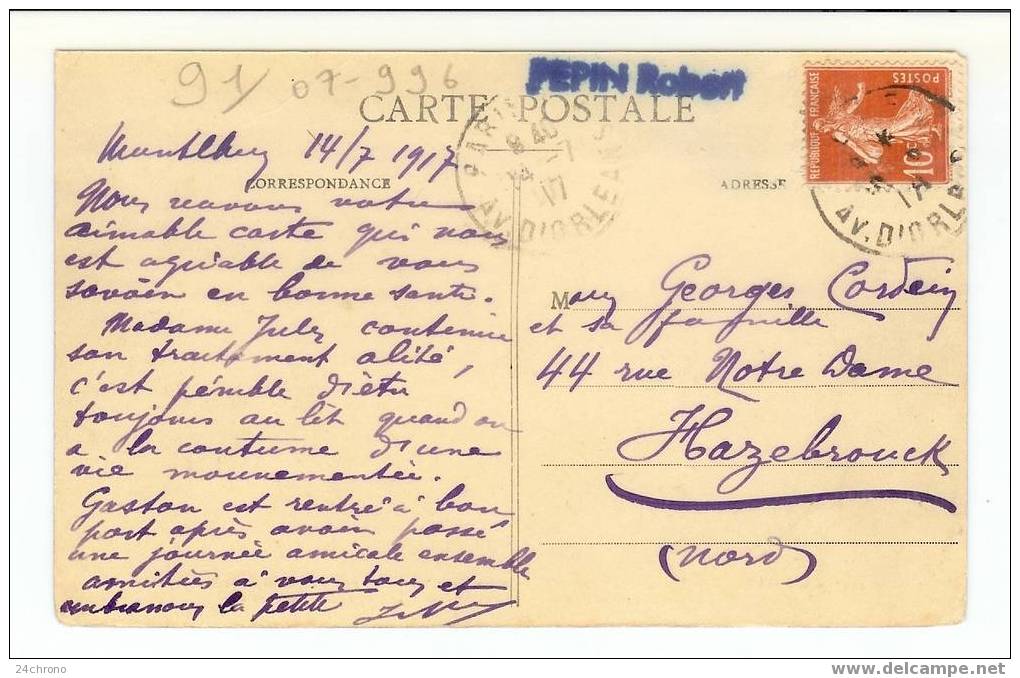 91/ 07-996
PEPIN Robert
CARTE POSTALE
POSTES
REPUBLIQUE FRANCAISE
10c
PARIS
8 40
17
AV. D'ORLEANS
AV. D'ORLEANS
Montlhery 14/7 1917
CORRESPONDANCE
ADRESSE
Nous recevons votre
aimable carte qui nous
est agréable de vous
savoir en bonne santé.
Madame Jules continue
son traitement alité,
c'est pénible d'être
toujours au lit quand on
a la coutume d'une
vie mouvementée.
Gaston est rentré à bon
port après avoir passé
une journée amicale ensemble
amitiés à vous tous et
embrassons la petite
Georges Cordein
et sa famille
44 rue Notre Dame
Hazebrouck
(Nord)
24chrono
www.delcampe.net